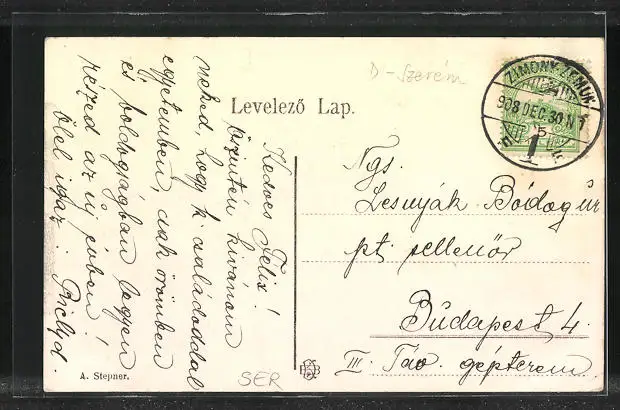 D-Szerém
Levelező Lap.
ZIMONY-ZEMUN
908 DEC. 30 N 7
Kedves Felix!
Őszintén kivánom
neked, hogy k. családoddal
egyetemben, csak örömben
és boldogságban legyen
részed az új évben!
Ölel igaz:
Ngs.
Lesnyák Bódog úr
pt. ellenőr
Budapest 4.
III. Táv. gépterem.
A. Stepner.
SER